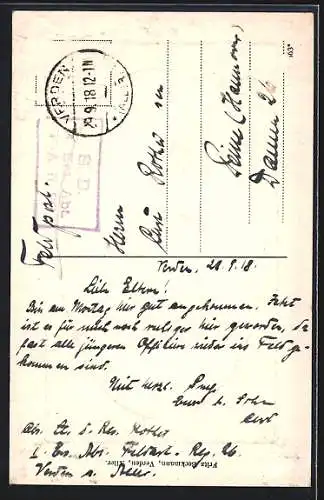 VERDEN
29.9.18.12-1N
(ALLER)
S.B.
Feldpost.
Herrn
Rother in
Peine (Hannover)
Damm 26
Verden, 28.9.18.
Liebe Eltern!
Bin am Montag hier gut angekommen. Jetzt
ist es für mich noch ruhiger hier geworden, da
fast alle jüngeren Offiziere wieder ins Feld ge-
kommen sind.
Mit herzl. Gruß
Euer tr. Sohn
Abs. Lt. d. Res. Rother
I. Ers. Abt. Feldart. Reg. 26.
Verden a. Aller.
Fritz Beckmann, Verden, Aller.